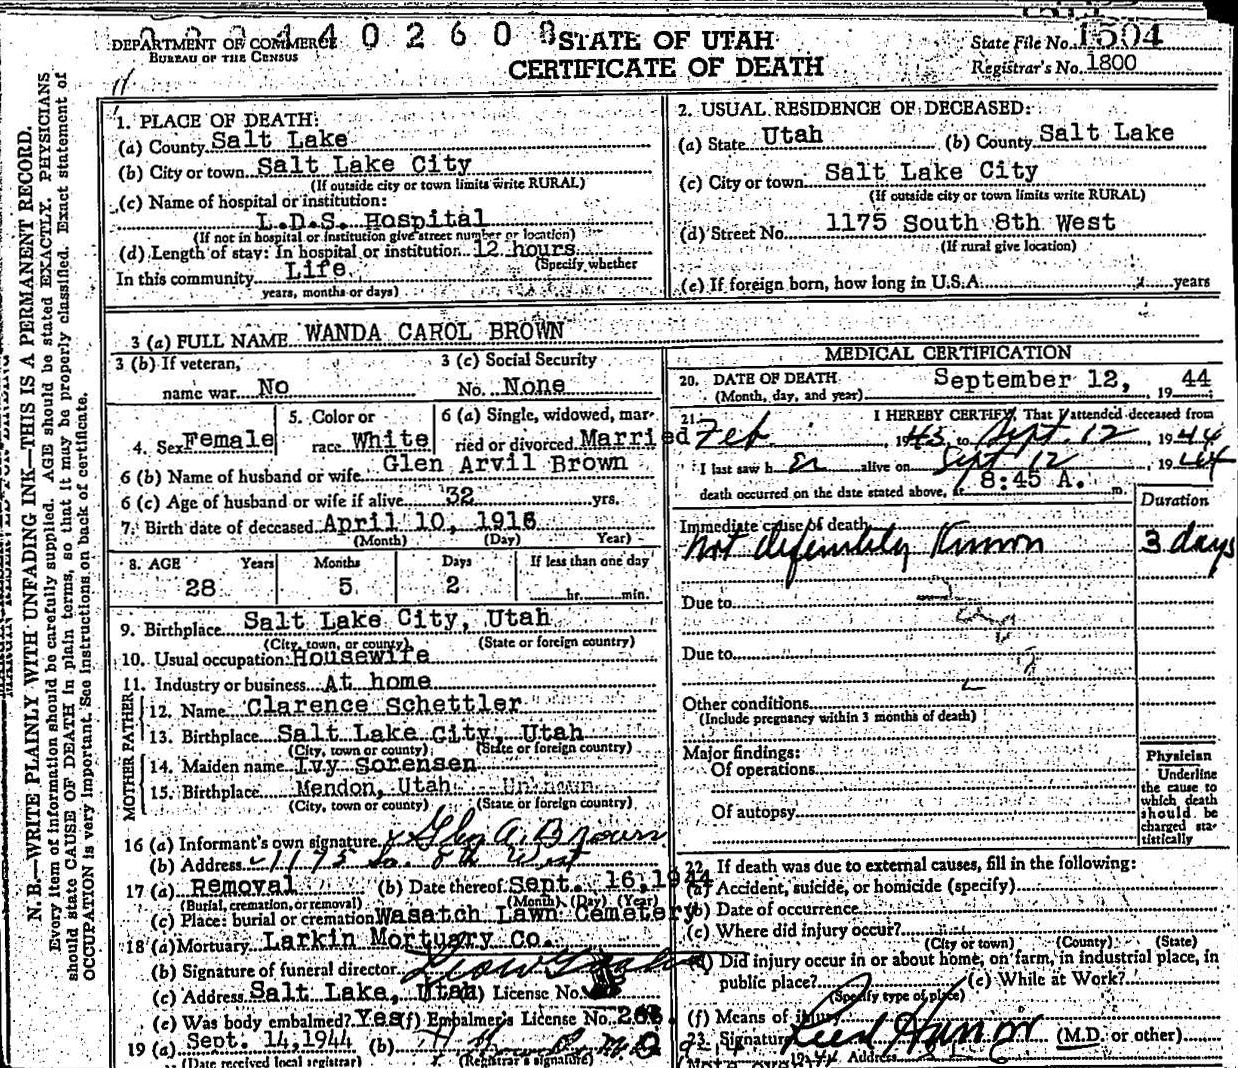 DEPARTMENT OF COMMERCE
BUREAU OF THE CENSUS
STATE OF UTAH
CERTIFICATE OF DEATH
State File No. 1504
Registrar's No. 1800
N. B.—WRITE PLAINLY WITH UNFADING INK—THIS IS A PERMANENT RECORD.
Every item of information should be carefully supplied. AGE should be stated EXACTLY. PHYSICIANS
should state CAUSE OF DEATH in plain terms, so that it may be properly classified. Exact statement of
OCCUPATION is very important. See instructions on back of certificate.
1. PLACE OF DEATH:
(a) County Salt Lake
(b) City or town Salt Lake City
(If outside city or town limits write RURAL)
(c) Name of hospital or institution:
L.D.S. Hospital
(If not in hospital or institution give street number or location)
(d) Length of stay: In hospital or institution 12 hours
(Specify whether
In this community Life
years, months or days)
2. USUAL RESIDENCE OF DECEASED:
(a) State Utah (b) County Salt Lake
(c) City or town Salt Lake City
(If outside city or town limits write RURAL)
(d) Street No. 1175 South 8th West
(If rural give location)
(e) If foreign born, how long in U.S.A. years
3 (a) FULL NAME WANDA CAROL BROWN
3 (b) If veteran,
name war No
3 (c) Social Security
No. None
4. Sex Female
5. Color or
race White
6 (a) Single, widowed, mar-
ried or divorced Married
6 (b) Name of husband or wife Glen Arvil Brown
6 (c) Age of husband or wife if alive 32 yrs.
7. Birth date of deceased April 10, 1916
(Month) (Day) Year)
8. AGE Years Months Days If less than one day
28 5 2 hr. min.
9. Birthplace Salt Lake City, Utah
(City, town, or county) (State or foreign country)
10. Usual occupation: Housewife
11. Industry or business At home
FATHER
12. Name Clarence Schettler
13. Birthplace Salt Lake City, Utah
(City, town or county) (State or foreign country)
MOTHER
14. Maiden name Ivy Sorensen
15. Birthplace Mendon, Utah Unknown
(City, town or county) (State or foreign country)
16 (a) Informant's own signature Glen A. Brown
(b) Address 1175 So. 8th West
17 (a) Removal (b) Date thereof Sept. 16, 1944
(Burial, cremation, or removal) (Month) (Day) (Year)
(c) Place: burial or cremation Wasatch Lawn Cemetery
18 (a) Mortuary Larkin Mortuary Co.
(b) Signature of funeral director
(c) Address Salt Lake, Utah License No.
(e) Was body embalmed? Yes (f) Embalmer's License No.
19 (a) Sept. 14, 1944 (b)
(Date received local registrar) (Registrar's signature)
MEDICAL CERTIFICATION
20. DATE OF DEATH September 12, 1944
(Month, day, and year)
21. I HEREBY CERTIFY, That I attended deceased from
Feb. 1943, to Sept. 12, 1944
I last saw her alive on Sept 12 1944
death occurred on the date stated above, at 8:45 A. m.
Duration
Immediate cause of death
Not definitely Known 3 days
Due to
Due to
Other conditions
(Include pregnancy within 3 months of death)
Major findings:
Of operations
Of autopsy
Physician
Underline
the cause to
which death
should be
charged sta-
tistically
22. If death was due to external causes, fill in the following:
(a) Accident, suicide, or homicide (specify)
(b) Date of occurrence
(c) Where did injury occur?
(City or town) (County) (State)
(d) Did injury occur in or about home, on farm, in industrial place, in
public place? (e) While at Work?
(Specify type of place)
(f) Means of injury
23. Signature (M.D. or other)
Address